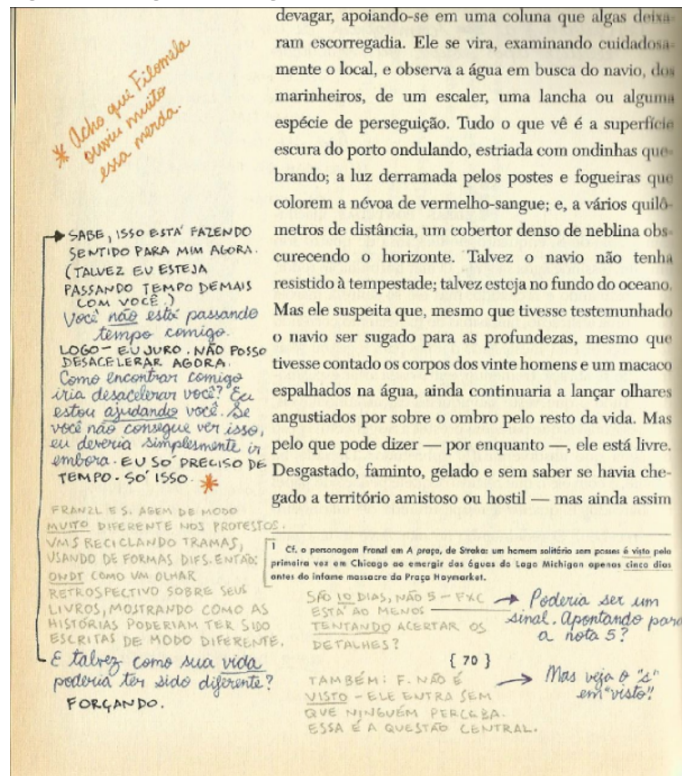 devagar, apoiando-se em uma coluna que algas deixa-
ram escorregadia. Ele se vira, examinando cuidadosa-
mente o local, e observa a água em busca do navio, dos
marinheiros, de um escaler, uma lancha ou alguma
espécie de perseguição. Tudo o que vê é a superfície
escura do porto ondulando, estriada com ondinhas que-
brando; a luz derramada pelos postes e fogueiras que
colorem a névoa de vermelho-sangue; e, a vários quilô-
metros de distância, um cobertor denso de neblina obs-
curecendo o horizonte. Talvez o navio não tenha
resistido à tempestade; talvez esteja no fundo do oceano.
Mas ele suspeita que, mesmo que tivesse testemunhado
o navio ser sugado para as profundezas, mesmo que
tivesse contado os corpos dos vinte homens e um macaco
espalhados na água, ainda continuaria a lançar olhares
angustiados por sobre o ombro pelo resto da vida. Mas
pelo que pode dizer — por enquanto —, ele está livre.
Desgastado, faminto, gelado e sem saber se havia che-
gado a território amistoso ou hostil — mas ainda assim
* Acho que Filomela
ouviu muito
essa merda.
SABE, ISSO ESTÁ FAZENDO
SENTIDO PARA MIM AGORA.
(TALVEZ EU ESTEJA
PASSANDO TEMPO DEMAIS
COM VOCÊ.)
Você não está passando
tempo comigo.
LOGO - EU JURO. NÃO POSSO
DESACELERAR AGORA.
Como encontrar comigo
iria desacelerar você? Eu
estou ajudando você. Se
você não consegue ver isso,
eu deveria simplesmente ir
embora. EU SÓ PRECISO DE
TEMPO. SÓ ISSO. *
FRANZL E S. AGEM DE MODO
MUITO DIFERENTE NOS PROTESTOS.
VMS RECICLANDO TRAMAS,
USANDO DE FORMAS DIFS. ENTÃO:
ONDT COMO UM OLHAR
RETROSPECTIVO SOBRE SEUS
LIVROS, MOSTRANDO COMO AS
HISTÓRIAS PODERIAM TER SIDO
ESCRITAS DE MODO DIFERENTE.
E talvez como sua vida
poderia ter sido diferente?
FORÇANDO.
1 Cf. o personagem Franzl em A praça, de Straka: um homem solitário sem posses é visto pela
primeira vez em Chicago ao emergir das águas do Lago Michigan apenas cinco dias
antes do infame massacre da Praça Haymarket.
SÃO 10 DIAS, NÃO 5 - FXC
ESTÁ AO MENOS
TENTANDO ACERTAR OS
DETALHES?
Poderia ser um
sinal. Apontando para
a nota 5?
{ 70 }
TAMBÉM: F. NÃO É
VISTO - ELE ENTRA SEM
QUE NINGUÉM PERCEBA.
ESSA É A QUESTÃO CENTRAL.
Mas veja o "s"
em "visto"!